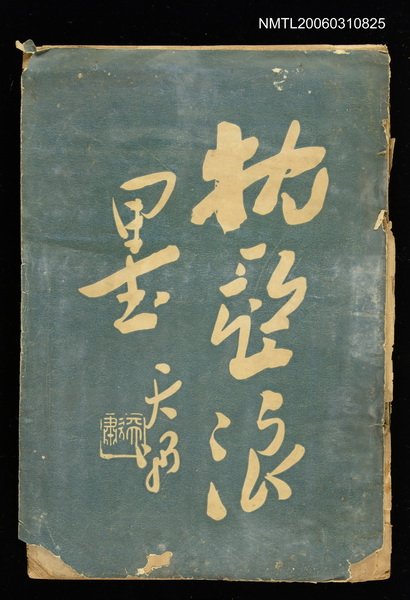 NMTL20060310825
枕亞浪
墨
天